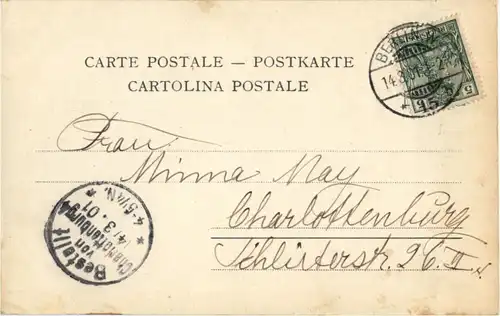 CARTE POSTALE — POSTKARTE
CARTOLINA POSTALE
BERLIN
14.3.01
15
5
Frau
Minna May
Charlottenburg
Schlüterstr. 26. II
Bestellt
von
Charlottenburg
4-5¼N.